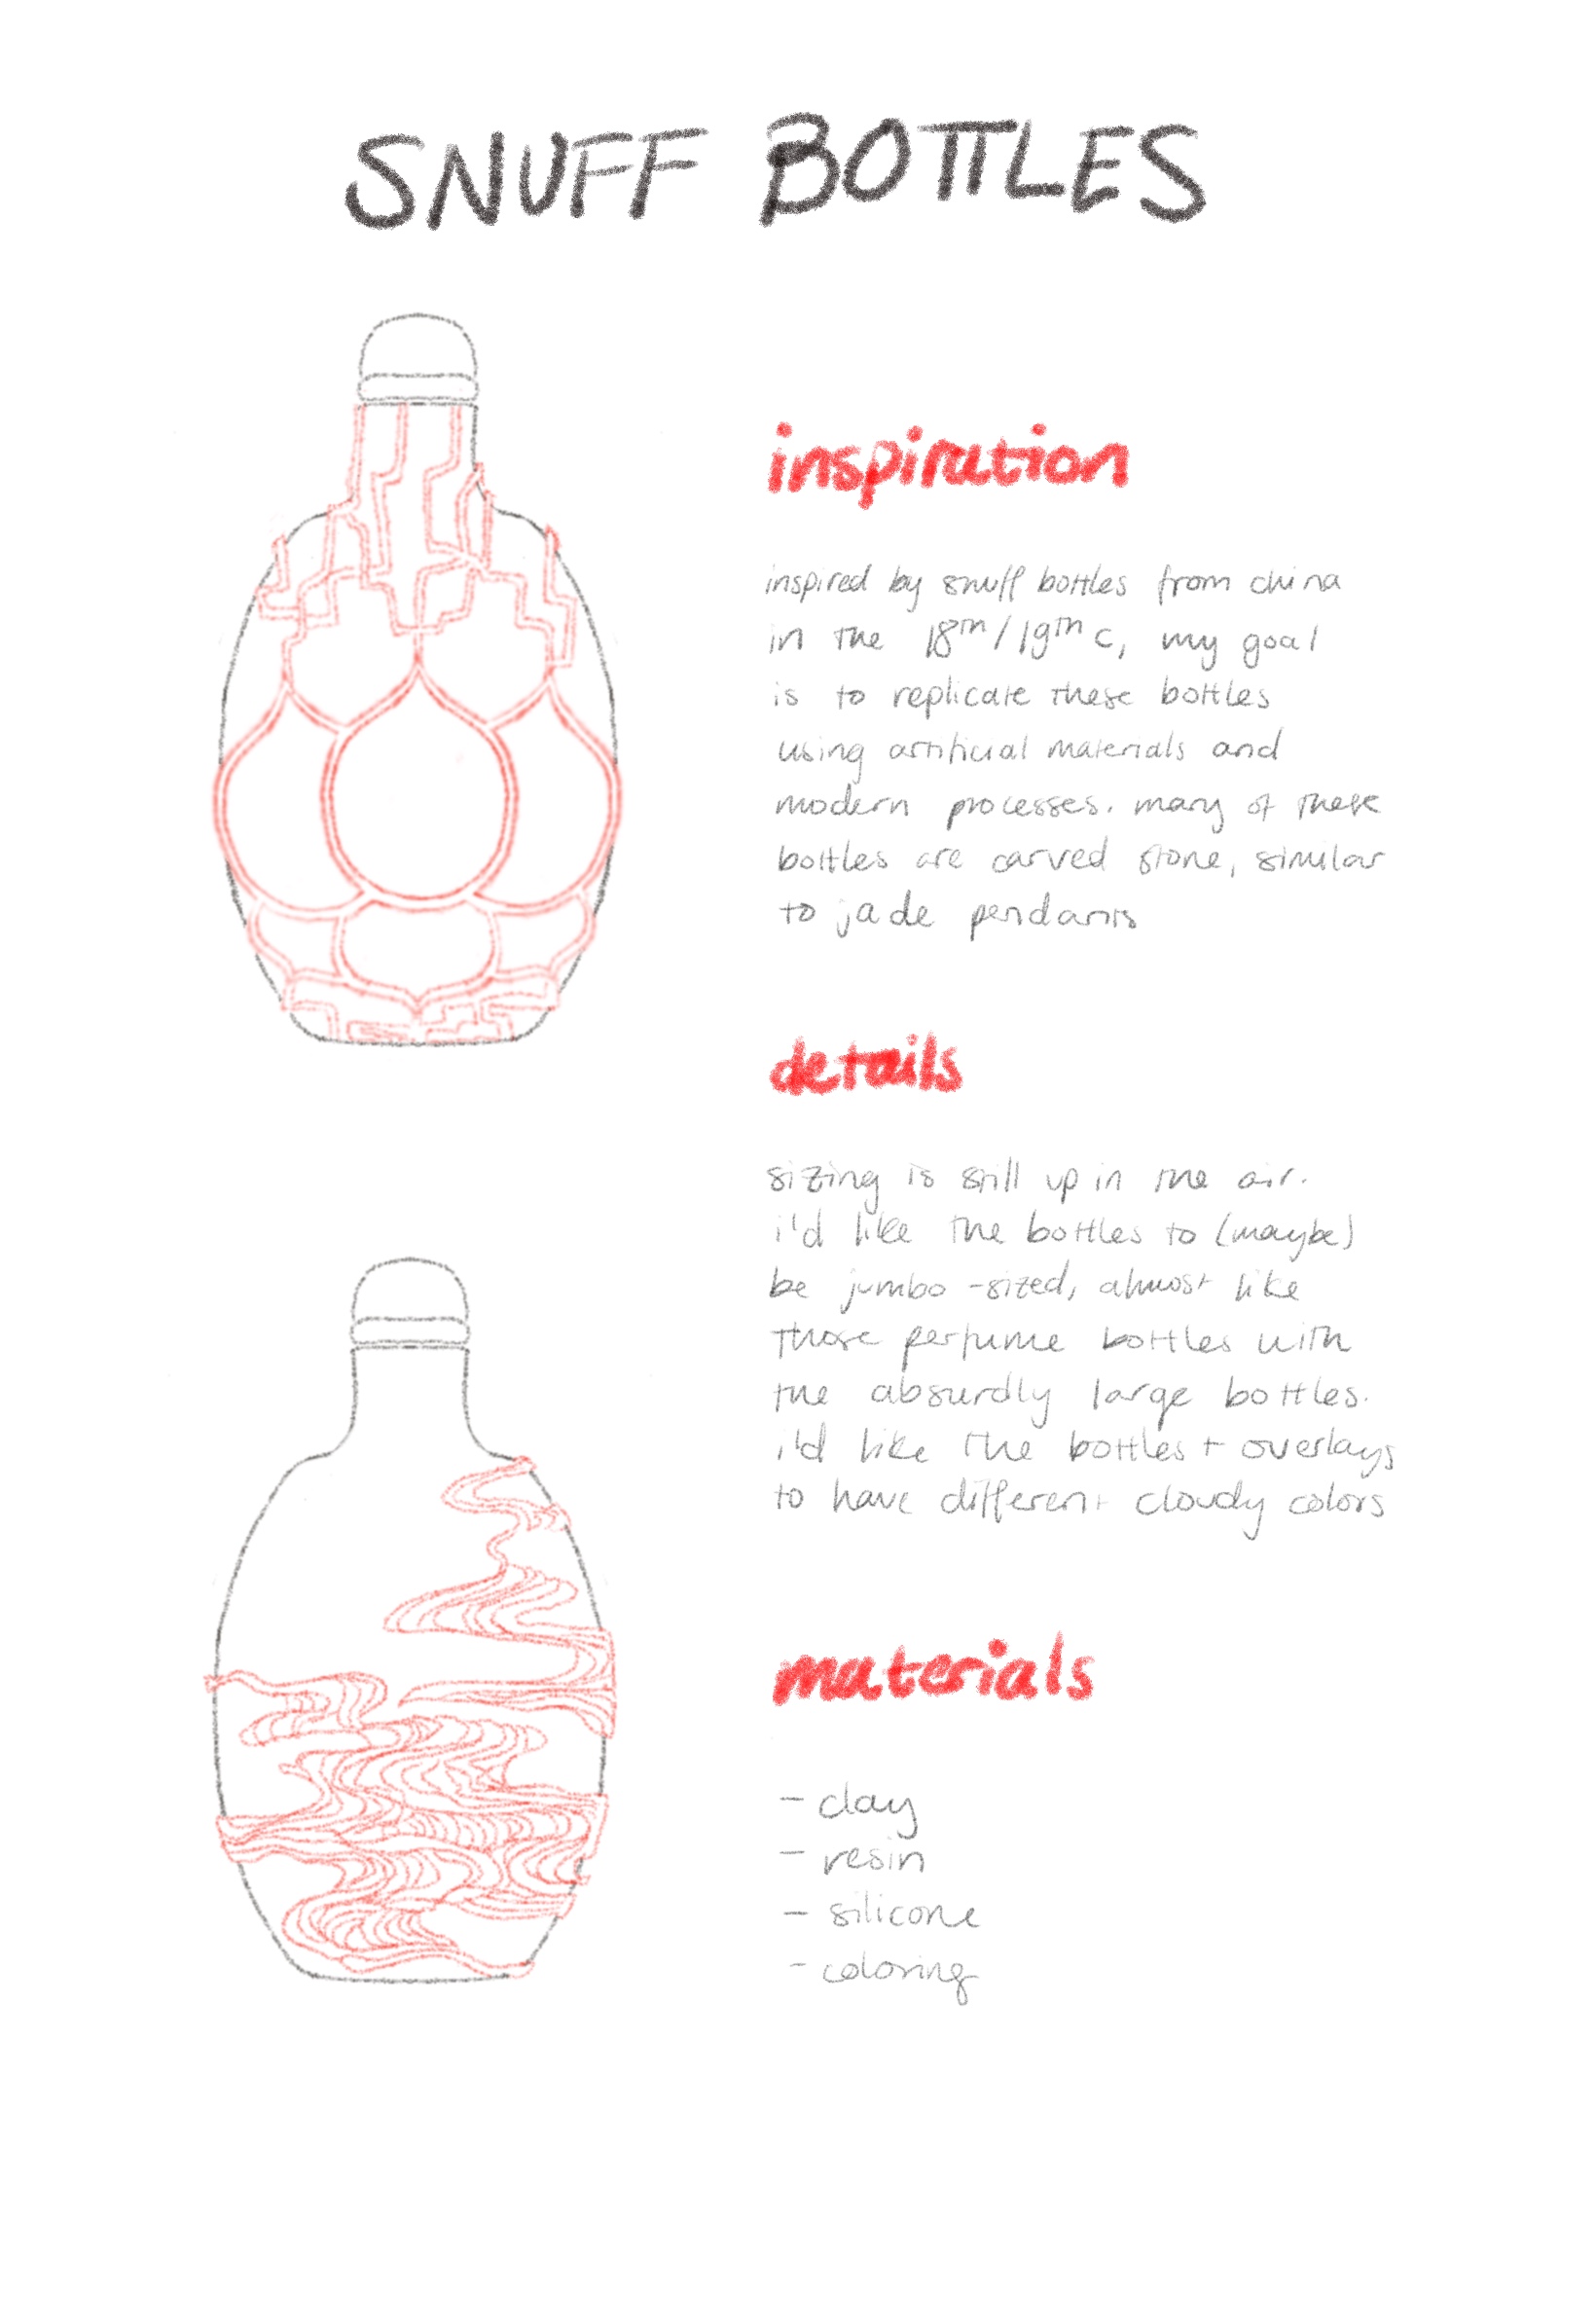 SNUFF BOTTLES
inspiration
inspired by snuff bottles from china
in the 18th/19th c, my goal
is to replicate these bottles
using artificial materials and
modern processes. many of these
bottles are carved stone, similar
to jade pendants
details
sizing is still up in the air.
i'd like the bottles to (maybe)
be jumbo-sized, almost like
those perfume bottles with
the absurdly large bottles.
i'd like the bottles + overlays
to have different cloudy colors
materials
- clay
- resin
- silicone
- coloring